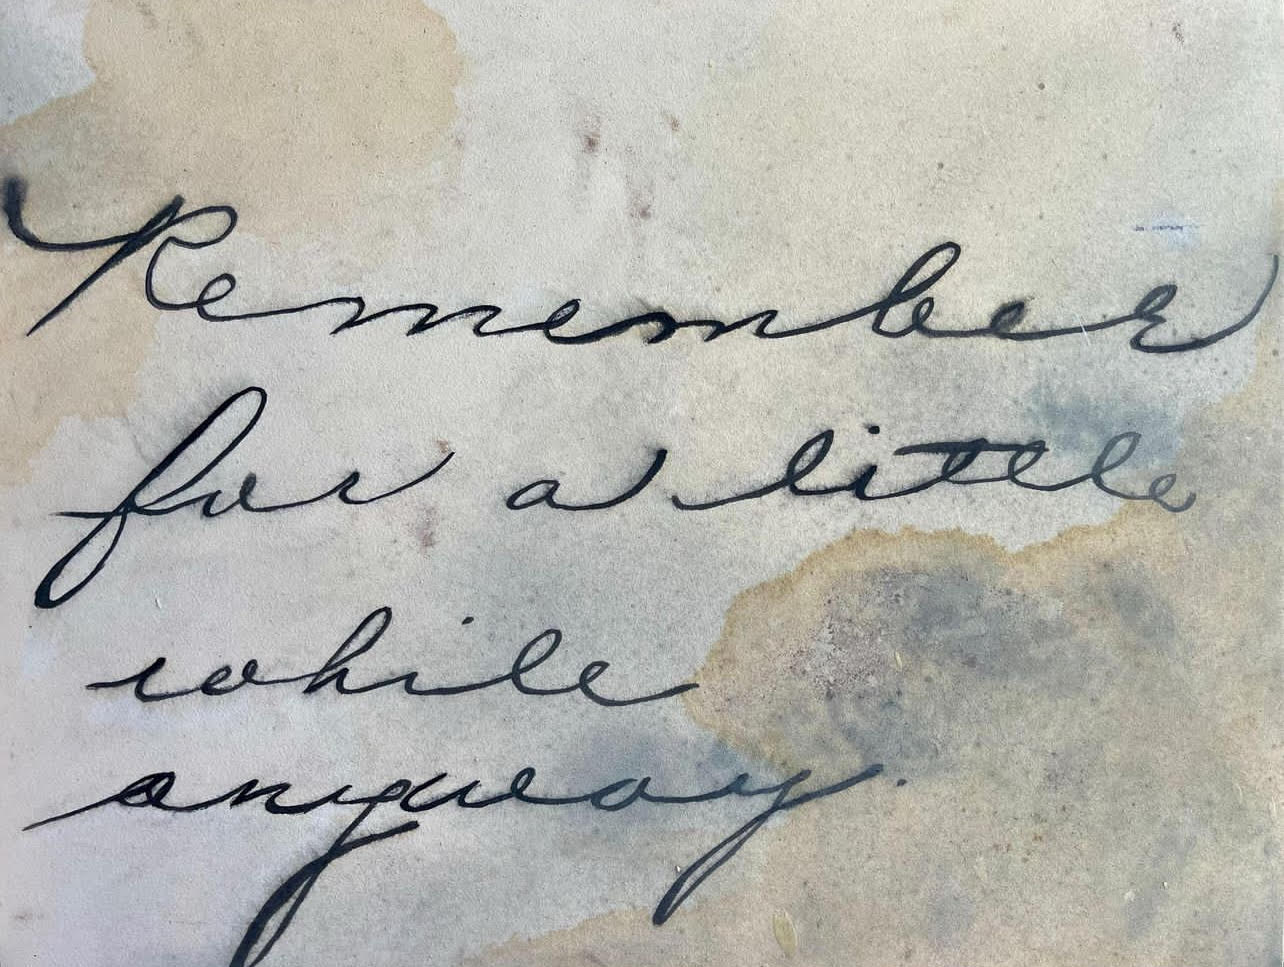 Remember
for a little
while
anyway.